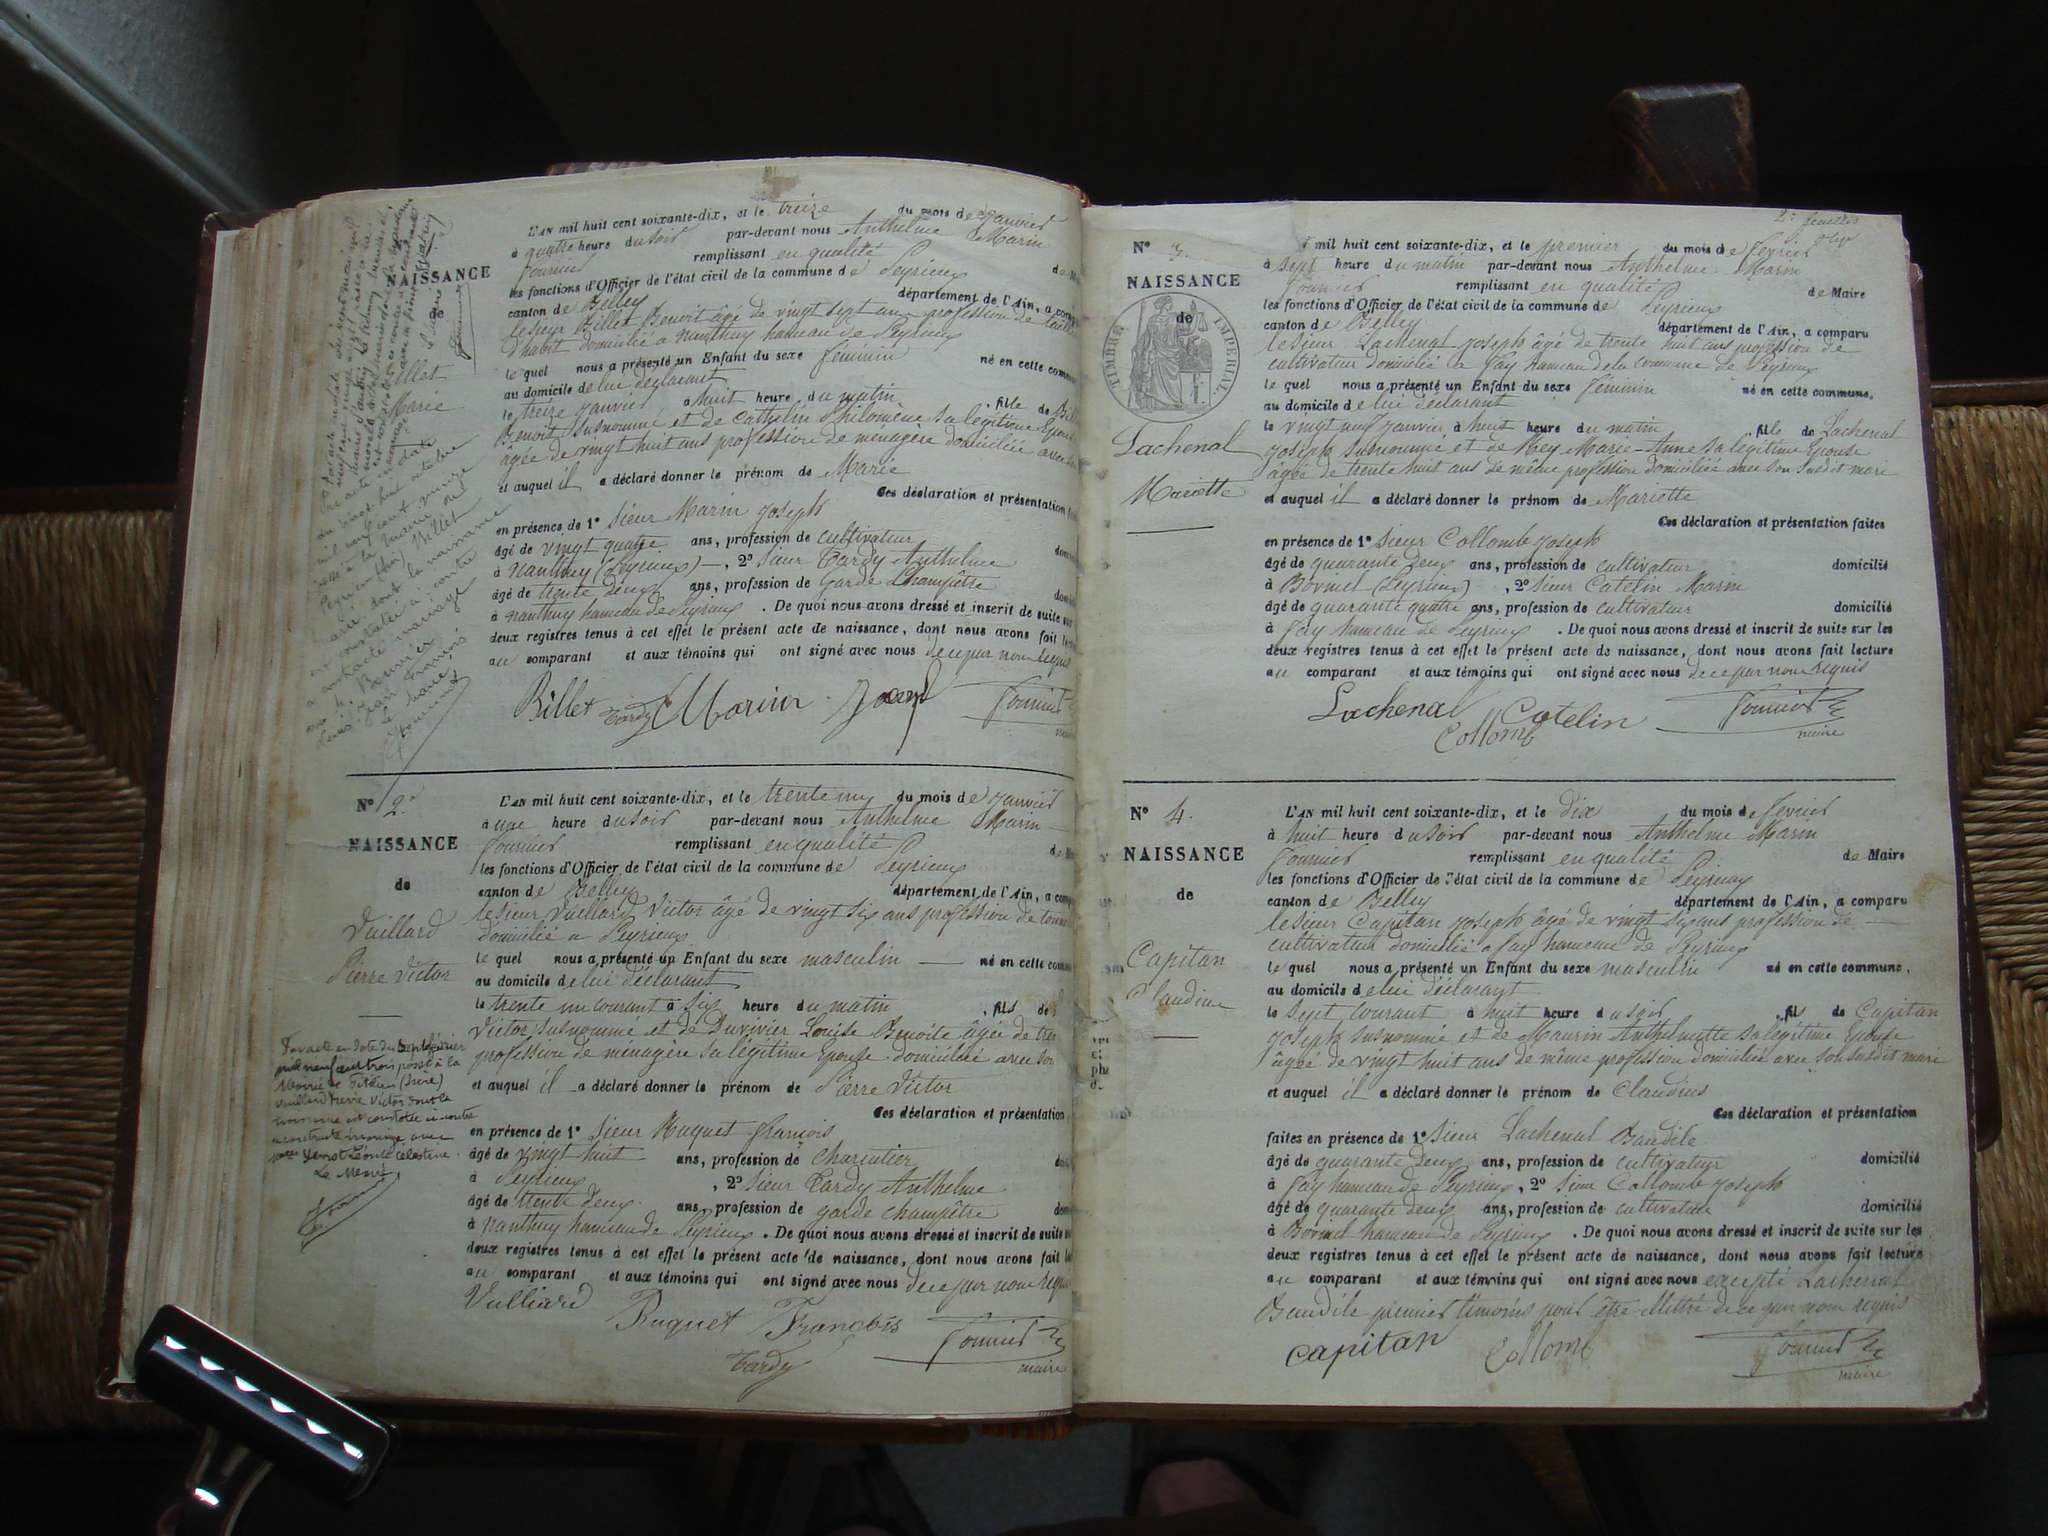 NAISSANCE
de
Billet
Marie
L'AN mil huit cent soixante-dix, et le treize du mois de Janvier
à quatre heure du soir par-devant nous Anthelme Marin
Fournier remplissant en qualité de
les fonctions d'Officier de l'état civil de la commune de Peyrieux
canton de Belley département de l'Ain, a
le sieur Billet Benoit âgé de vingt sept ans profession de
d'habit domicilié à Nanthuy hameau de Peyrieux
le quel nous a présenté un Enfant du sexe féminin né en cette
au domicile de lui déclarant
le treize Janvier à huit heure du matin, fille de
Benoit susnommé et de Cathelin Philomène sa légitime Epouse
agée de vingt huit ans profession de menagère domiciliée avec
et auquel il a déclaré donner le prénom de Marie
Ces déclaration et présentation
en présence de 1° Sieur Marin Joseph
âgé de vingt quatre ans, profession de cultivateur
à Nanthuy (Peyrieux) —, 2° Sieur Tardy Anthelme
âgé de trente deux ans, profession de Garde Champêtre
à Nanthuy hameau de Peyrieux. De quoi nous avons dressé et inscrit de suite sur
deux registres tenus à cet effet le présent acte de naissance, dont nous avons fait
au comparant et aux témoins qui ont signé avec nous de ce par nous requis
Billet Tardy Marin Joseph Fournier
N° 2.
NAISSANCE
de
Vuillard
Pierre Victor
L'AN mil huit cent soixante-dix, et le trente un du mois de Janvier
à une heure du soir par-devant nous Anthelme Marin
Fournier remplissant en qualité
les fonctions d'Officier de l'état civil de la commune de Peyrieux
canton de Belley département de l'Ain, a
le sieur Vuillard Victor âgé de vingt six ans profession de
domicilié a Peyrieux
le quel nous a présenté un Enfant du sexe masculin — né en cette
au domicile de lui déclarant
le trente un courant à six heure du matin, fils de
Victor susnommé et de Duvivier Louise Benoite âgée de
profession de ménagère sa légitime Epouse domiciliée avec son
et auquel il a déclaré donner le prénom de Pierre Victor
Ces déclaration et présentation
en présence de 1° Sieur Ruquet françois
âgé de vingt huit ans, profession de charcutier
à Peyrieux, 2° Sieur Tardy Anthelme
âgé de trente deux ans, profession de garde champêtre
à Nanthuy hameau de Peyrieux. De quoi nous avons dressé et inscrit de suite
deux registres tenus à cet effet le présent acte de naissance, dont nous avons fait
au comparant et aux témoins qui ont signé avec nous de ce par nous
Vulliard Ruquet François Fournier
Tardy maire
N° 3.
NAISSANCE
de
TIMBRE IMPERIAL
Lachenal
Mariette
mil huit cent soixante-dix, et le premier du mois de Février
à sept heure du matin par-devant nous Anthelme Marin
Fournier remplissant en qualité de Maire
les fonctions d'Officier de l'état civil de la commune de Peyrieux
canton de Belley département de l'Ain, a comparu
le sieur Lachenal Joseph âgé de trente huit ans profession de
cultivateur domicilié a Fay hameau de la commune de Peyrieux
le quel nous a présenté un Enfant du sexe féminin né en cette commune,
au domicile de lui déclarant
le vingt neuf Janvier à huit heure du matin, fille de Lachenal
Joseph susnommé et de Mey Marie-Anne sa légitime Epouse
âgée de trente huit ans de même profession domiciliée avec son susdit mari
et auquel il a déclaré donner le prénom de Mariette
Ces déclaration et présentation faites
en présence de 1° Sieur Collombe Joseph
âgé de quarante deux ans, profession de cultivateur domicilié
à Bovinel (Peyrieux), 2° Sieur Catelin Marin
âgé de quarante quatre ans, profession de cultivateur domicilié
à Fay hameau de Peyrieux. De quoi nous avons dressé et inscrit de suite sur les
deux registres tenus à cet effet le présent acte de naissance, dont nous avons fait lecture
au comparant et aux témoins qui ont signé avec nous de ce par nous requis
Lachenal Catelin Fournier
Collomb maire
N° 4.
NAISSANCE
de
Capitan
Claudine
L'AN mil huit cent soixante-dix, et le Dix du mois de Février
à huit heure du soir par-devant nous Anthelme Marin
Fournier remplissant en qualité de Maire
les fonctions d'Officier de l'état civil de la commune de Peyrieux
canton de Belley département de l'Ain, a comparu
le sieur Capitan Joseph âgé de vingt six ans profession de
cultivateur domicilié a Fay hameau de Peyrieux
le quel nous a présenté un Enfant du sexe masculin né en cette commune,
au domicile de lui déclarant
le sept courant à huit heure du soir, fils de Capitan
Joseph susnommé et de Maurin Anthelmette sa légitime Epouse
âgée de vingt huit ans de même profession domiciliée avec son susdit mari
et auquel il a déclaré donner le prénom de Claudius
Ces déclaration et présentation
faites en présence de 1° Sieur Lachenal Baudile
âgé de quarante deux ans, profession de cultivateur domicilié
à Fay hameau de Peyrieux, 2° Sieur Collombe Joseph
âgé de quarante deux ans, profession de cultivateur domicilié
à Bovinel hameau de Peyrieux. De quoi nous avons dressé et inscrit de suite sur les
deux registres tenus à cet effet le présent acte de naissance, dont nous avons fait lecture
au comparant et aux témoins qui ont signé avec nous excepté Lachenal
Baudile premier témoins pour être illitré de ce par nous requis
capitan Collomb Fournier
maire